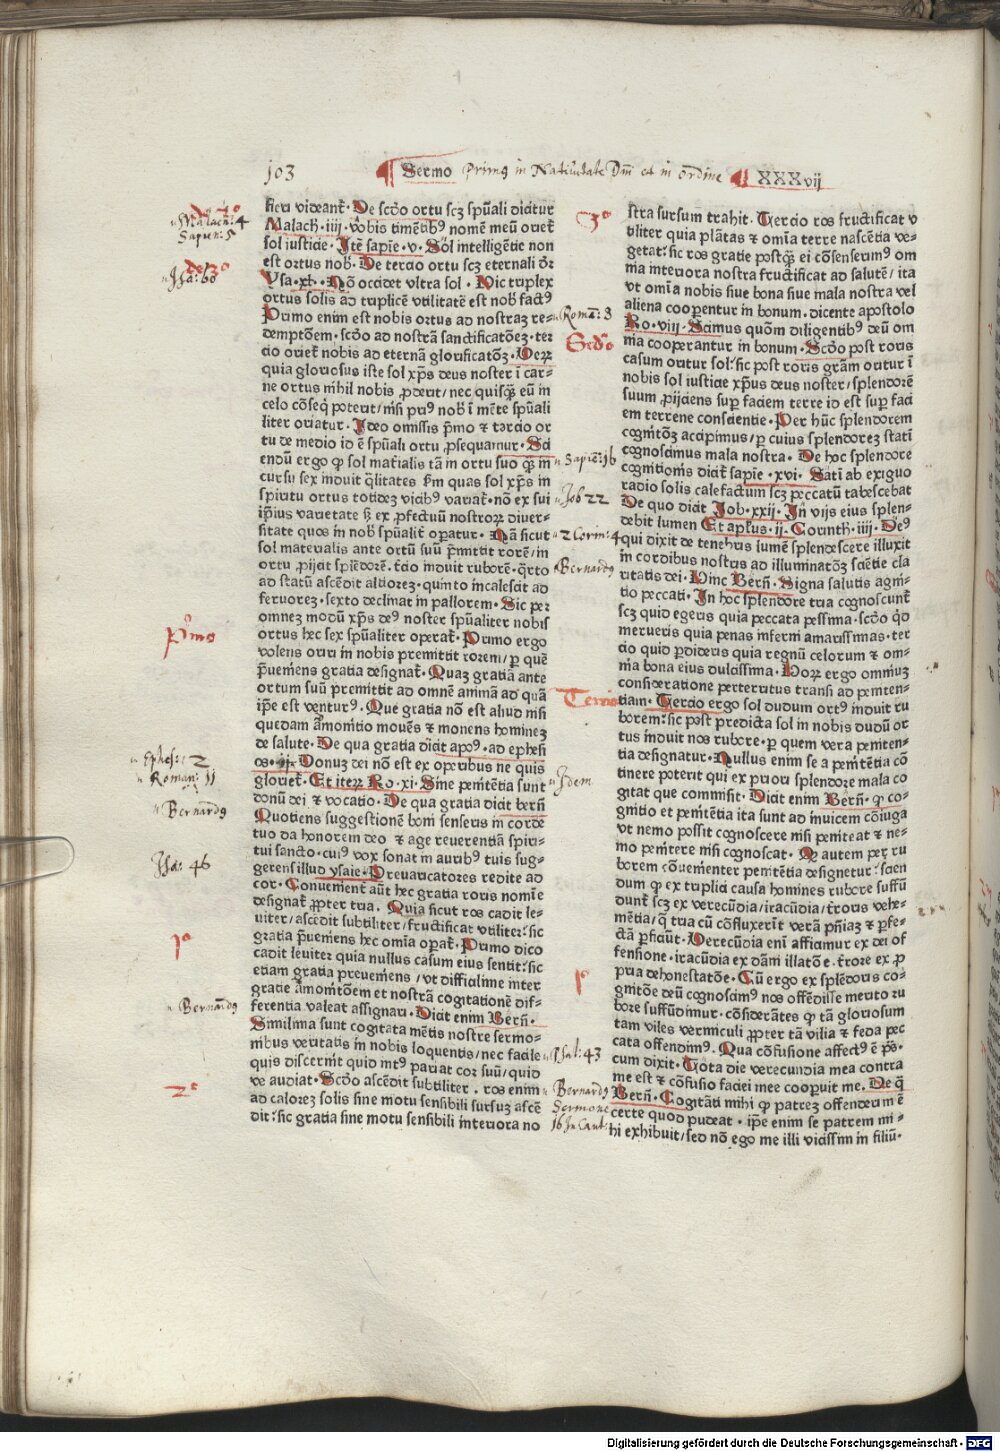 103
Sermo Primꝰ in Natiuitate Dnī et in ordine XXXvij
fieri videant᷑. De scd̓o ortu scꝫ spūali dicitur
Malach. iiij. vobis timētibꝰ nomē meū oriet᷑
sol iusticie. Itē sapiē. v. Sol intelligētie non
est ortus nob̓. De tercio ortu scꝫ eternali dr̄
Ysa. xl. Nō occidet vltra sol. Hic triplex
ortus solis ad triplicē vtilitatē est nob̓ factꝰ
Primo enim est nobis ortus ad nostraꝫ re-
demptōem. scd̓o ad nostrā sanctificatōeꝫ. ter
cio oriet᷑ nobis ad eternā glorificatōꝫ. Veꝝ
quia gloriosus iste sol xp̄s deus noster ī car-
ne ortus nihil nobis ꝓderit/ nec quisqꝫ eū in
celo cōseq̄ poterit/ nisi priꝰ nob̓ ī mēte spūali
liter oriatur. Ideo omissis p̄mo ⁊ tercio or
tu de medio id ē spūali ortu ꝓsequamur. Sci
endū ergo ꝙ sol mat̓ialis tā in ortu suo qꝫ in
cursu sex induit q̄litates ẜm quas sol xp̄s in
spiritu ortus totideꝫ viabꝰ variat᷑. nō ex sui
ip̄ius varietate sꝫ ex ꝓfectuū nostroꝝ diuer-
sitate quos in nob̓ spūalit᷑ oꝑatur. Nā sicut
sol materialis ante ortū suū p̄mittit rorē/ in
ortu ꝓijcit splēdorē. t̓cio induit ruborē. q̄rto
ad statū ascēdit altioreꝫ. quinto incalescit ad
feruoreꝫ. sexto declinat in pallorem. Sic per
omneꝫ modū xp̄s deꝰ noster spūaliter nobis
ortus hec sex spūaliter operat᷑. Primo ergo
volens oriri in nobis premittit rorem/ ꝑ quē
p̄ueniens gratia designat᷑. Quaꝫ gratiā ante
ortum suū premittit ad omnē animā ad quā
ip̄e est venturꝰ. Que gratia nō est aliud nisi
quedam āmonitio mouēs ⁊ monens homineꝫ
de salute. De qua gratia dicit apoꝰ. ad ephesi
os. ij. Donuꝫ dei nō est ex operibus ne quis
gloriet᷑. Et iteꝝ Ro. xi. Sine penitētia sunt
donū dei ⁊ vocatio. De qua gratia dicit bern̄
Quotiens suggestionē boni senseris in corde
tuo da honorem deo ⁊ age reuerentiā spiri-
tui sancto. cuiꝰ vox sonat in auribꝰ tuis sug-
gerens illud ysaie. Preuaricatores redite ad
cor. Conuenient᷑ aūt hec gratia roris nomīe
designat᷑ ꝓpter tria. Quia sicut ros cadit le-
uiter/ ascēdit subtiliter/ fructificat vtiliter: sic
gratia p̄ueniens hec omīa oꝑat᷑. Primo dico
cadit leuiter quia nullus casum eius sentit: sic
etiam gratia preueniens/ vt difficilime inter
gratie āmonitōem et nostrā cogitationē dif-
ferentia valeat assignari. Dicit enim Bern̄.
Simillima sunt cogitata mētis nostre sermo-
nibus veritatis in nobis loquentis/ nec facile
quis discernit quid intꝰ pariat cor suū/ quid
ve audiat. Scd̓o ascēdit subtiliter. ros enim
ad caloreꝫ solis sine motu sensibili sursuꝫ ascē
dit: sic gratia sine motu sensibili interiora no
stra sursum trahit. Tercio ros fructificat v
tiliter quia plātas ⁊ omīa terre nascētia ve-
getat: sic ros gratie postqꝫ ei cōsenserimꝰ om
nia interiora nostra fructificat ad salutē/ ita
vt omīa nobis siue bona siue mala nostra vel
aliena cooꝑentur in bonum. dicente apostolo
Ro. viij. Scimus quōm diligentibꝰ deū om
nia cooperantur in bonum. Scd̓o post roris
casum oritur sol: sic post roris grām oritur ī
nobis sol iusticie xp̄us deus noster/ splendorē
suum ꝓijciens suꝑ faciem terre id est suꝑ faci
em terrene conscientie. Per hūc splendorem
cognitōꝫ accipimus/ ꝑ cuius splendoreꝫ statī
cognoscimus mala nostra. De hoc splendore
cognitionis dicit᷑ sapiē. xvi. Stati ab exiguo
radio solis calefactum scꝫ peccatū tabescebat
De quo dicit Job. xxij. In vijs eius splen-
debit lumen Et apl̓us. ij. Corinth. iiij. Deꝰ
qui dixit de tenebris lumē splendescere illuxit
in cordibus nostris ad illuminatōꝫ sciētie cla
ritatis dei. Hinc Bern̄. Signa salutis agni-
tio peccati. In hoc splendore tria cognoscunt᷑
scꝫ quid egeris quia peccata pessima. scd̓o qͥd
merueris quia penas inferni amarissimas. ter
cio quid perdideris quia regnū celorum ⁊ om-
nia bona eius dulcissima. Hoꝝ ergo omniuꝫ
consideratione perterritus transi ad peniten-
tiam. Tercio ergo sol dudum ortꝰ induit ru
borem: sic post predicta sol in nobis dudū or
tus induit nos rubore. ꝑ quem vera peniten-
tia designatur. Nullus enim se a penitētia cō
tinere poterit qui ex priori splendore mala co
gitat que commisit. Dicit enim Bern̄. ꝙ co-
gnitio et penitētia ita sunt ad inuicem cōiuga
vt nemo possit cognoscere nisi peniteat ⁊ ne-
mo penitere nisi cognoscat. Q autem per ru
borem cōuenienter penitētia designetur: scien
dum ꝙ ex triplici causa homines rubore suffū
dunt᷑ scꝫ ex verecūdia/ iracūdia/ t̓roris vehe-
mētia/ q̄ tria cū cōfluxerīt verā pn̄iaꝫ ⁊ ꝑfe-
ctā ꝑficiūt. Verecūdia eni afficimur ex dei of
fensione. iracūdia ex dāni illatōe. t̓rore ex ꝓ
pria dehonestatōe. Cū ergo ex splēdoris co-
gnitōe deū cognoscimꝰ nos offēdisse merito ru
bore suffūdimur. cōsiderātes ꝙ tā gloriosum
tam viles vermiculi ꝓpter tā vilia ⁊ feda pec
cata offendimꝰ. Qua cōfusione affectꝰ ē p̄s.
cum dixit. Tota die verecundia mea contra
me est ⁊ cōfusio faciei mee cooperuit me. De q̄
Bern̄. Cogitāti mihi ꝙ patreꝫ offenderim ē
certe quod pudeat. ip̄e enim se patrem mi-
hi exhibuit/ sed nō ego me illi vicissim in filiū.
de 2º
Malach: 4
Sapien: 5
de 3º
Isa: 60
P̊mo
Ephes: 2
Roman: 11
Bernardꝰ
Isa: 46
1º
Bernardꝰ
2º
3º
Roma: 8
Scd̓o
Sapiē: 16
Job 22
2 Corin: 4
Bernardꝰ
Tercio
Idem
1º
Psal: 43
Bernardꝰ
Sermone
16 In Cant:
Digitalisierung gefördert durch die Deutsche Forschungsgemeinschaft - DFG